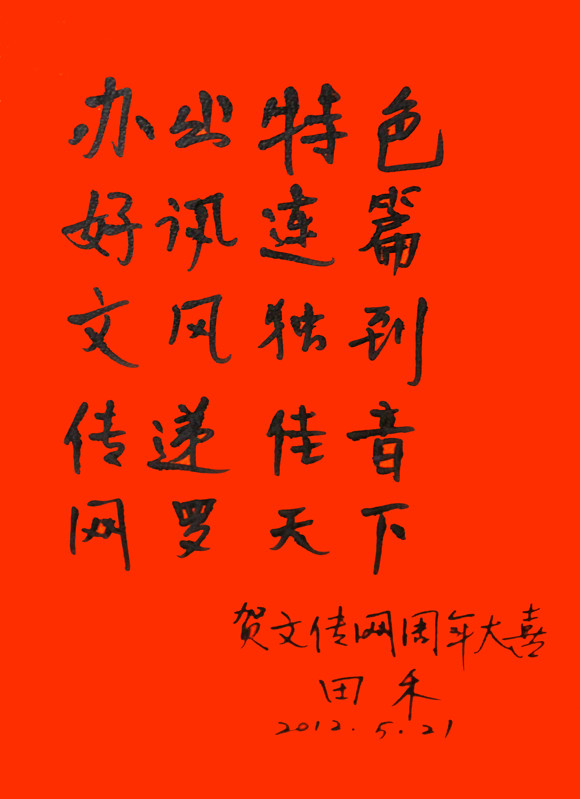 办出特色
好讯连篇
文风独到
传递佳音
网罗天下
贺文传网周年大喜
田禾
2012.5.21